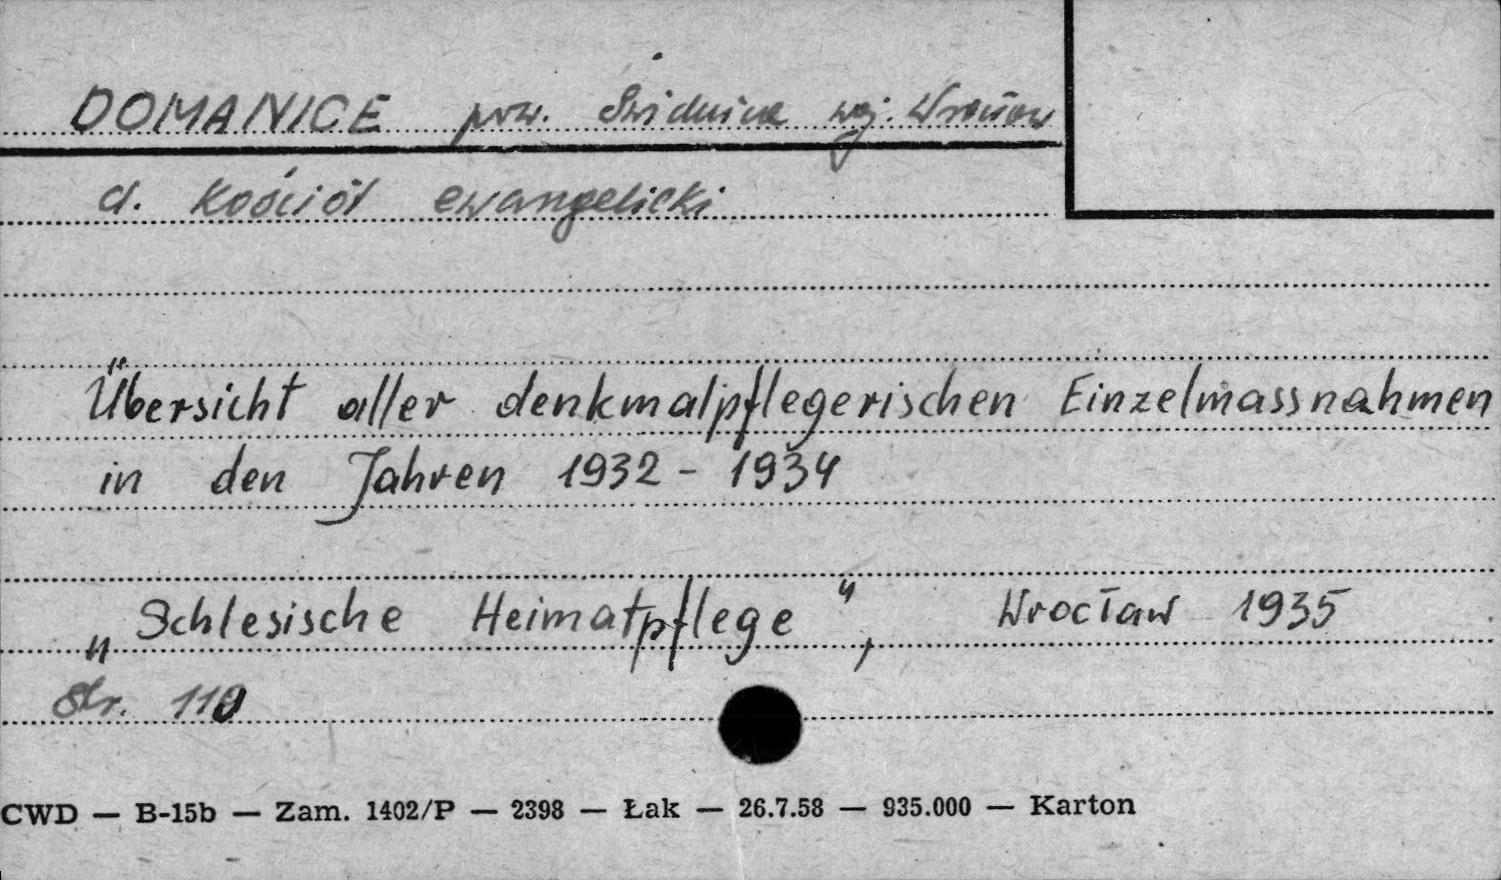 DOMANICE pow. Świdnica woj. Wrocław
d. Kościół ewangelicki
Übersicht aller denkmalpflegerischen Einzelmassnahmen
in den Jahren 1932 - 1934
„Schlesische Heimatpflege", Wrocław 1935
Str. 110
CWD — B-15b — Zam. 1402/P — 2398 — Łak — 26.7.58 — 935.000 — Karton